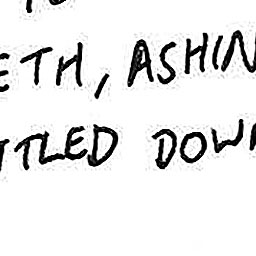 ETH, ASHIN
TTLED DOWN